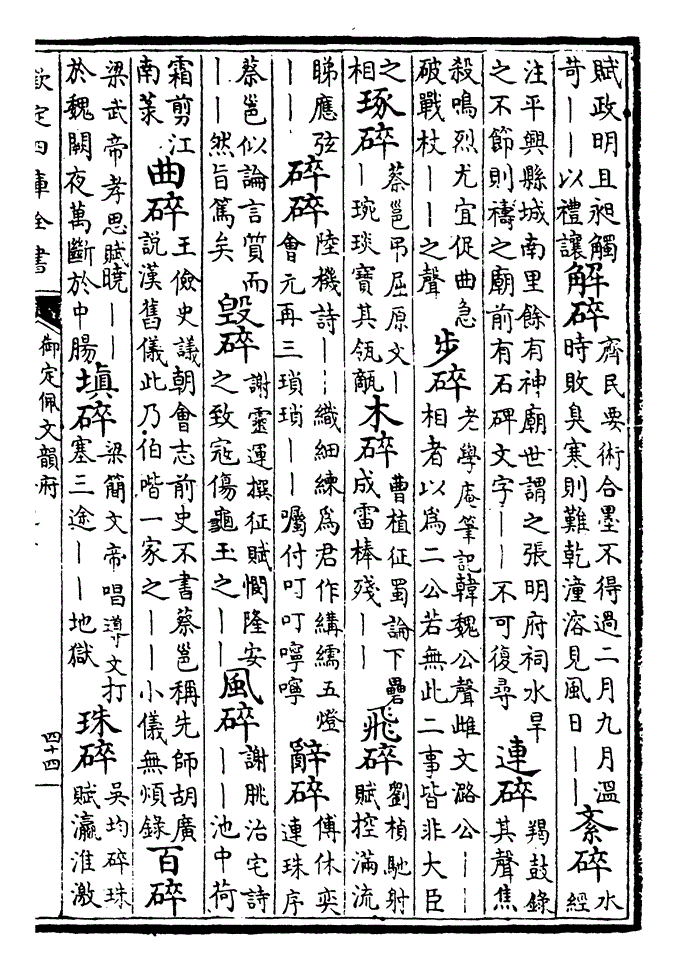 賦政明且昶觸
苛——以禮讓
解碎
齊民要術合墨不得過二月九月溫
時敗臭寒則難乾潼溶見風日——
紊碎
水
經
注平興縣城南里餘有神廟世謂之張明府祠水旱
之不節則禱之廟前有石碑文字——不可復尋
連碎
羯鼓錄
其聲焦
殺鳴烈尤宜促曲急
破戰杖——之聲
步碎
老學庵筆記韓魏公聲雌文潞公——
相者以為二公若無此二事皆非大臣
之
相
琢碎
蔡邕弔屈原文—
—琬琰寶其瓴甋
木碎
曹植征蜀論下礨
成雷棒殘——
飛碎
劉楨馳射
賦控滿流
睇應弦
——
碎碎
陸機詩——織細練為君作褠襦五燈
會元再三瑣瑣——囑付叮叮嚀嚀
辭碎
傅休奕
連珠序
蔡邕似論言質而
——然旨篤矣
毀碎
謝靈運撰征賦憫隆安
之致寇傷龜玉之——
風碎
謝朓治宅詩
——池中荷
霜剪江
南菉
曲碎
王儉史議朝會志前史不書蔡邕稱先師胡廣
說漢舊儀此乃伯喈一家之——小儀無煩錄
百碎
梁武帝孝思賦曉——
於魏闕夜萬斷於中腸
填碎
梁簡文帝唱導文打
塞三途——地獄
珠碎
吳均碎珠
賦瀛淮激
欽定四庫全書
御定佩文韻府
四十四